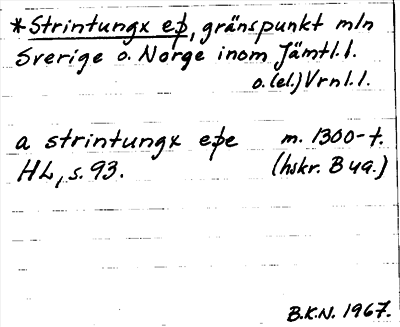 *Strintungx eþ, gränspunkt mln
Sverige o. Norge inom Jämtl.l.
o.(el.) Vrnl.l.
a strintungx eþe m. 1300-t.
HL, s. 93. (hskr. B ua.)
B.K.N. 1967.